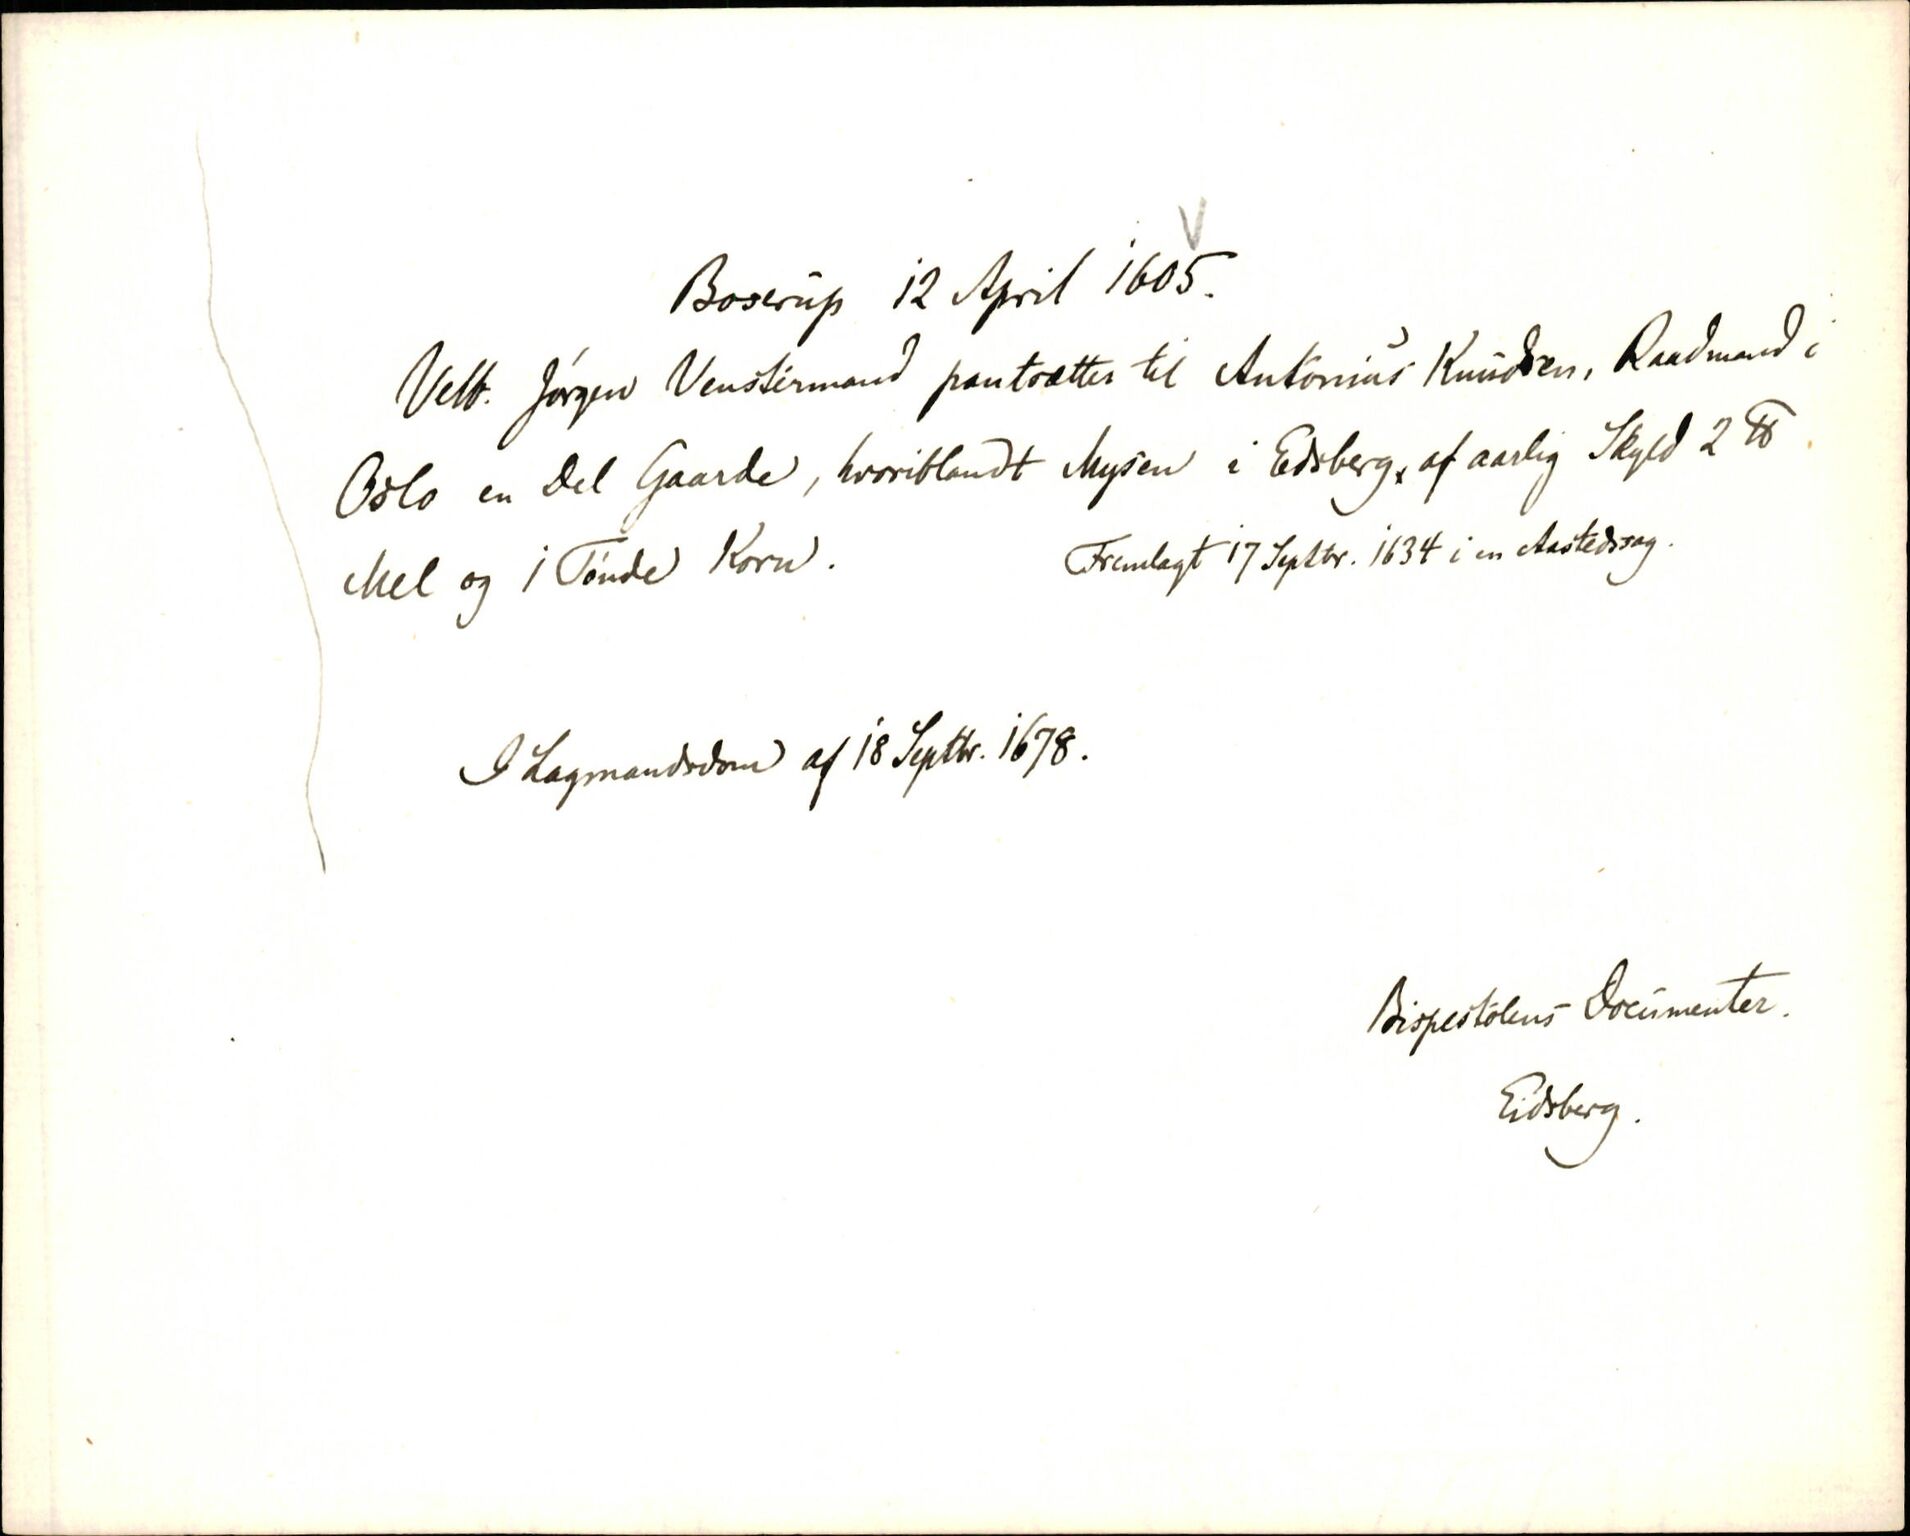 Boserup 12 April 1605.
Velb. Jørgen Venstermand pantsætter til Antonius Knudsen, Raadmand i
Oslo en Del Gaarde, hvoriblandt Mysen i Edsberg, af aarlig Skyld 2 ℔
Mel og 1 Tønde Korn.
Fremlagt 17 Septbr. 1634 i en Aastedssag.
I Lagmandsdom af 18 Septbr. 1678.
Bispestolens Documenter.
Eidsberg.